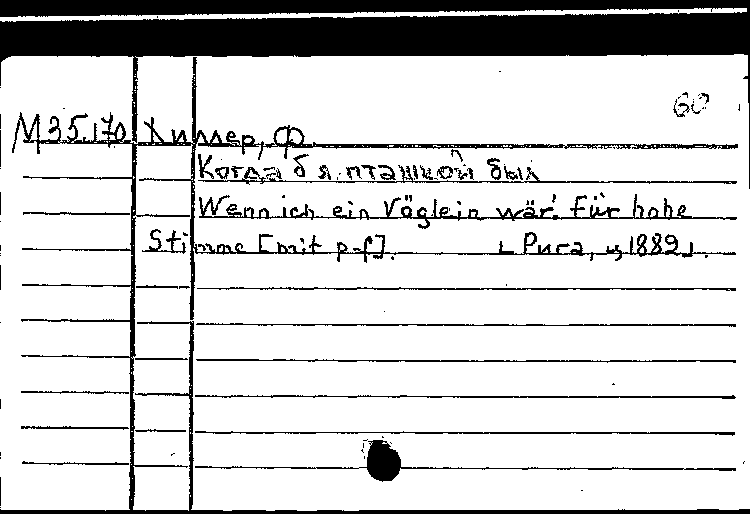 60
М35.170 Хиллер, Ф.
Когда б я пташкой был
Wenn ich ein Vöglein wär! Für hohe
Stimme [mit p-f]. [Рига, ц 1889].